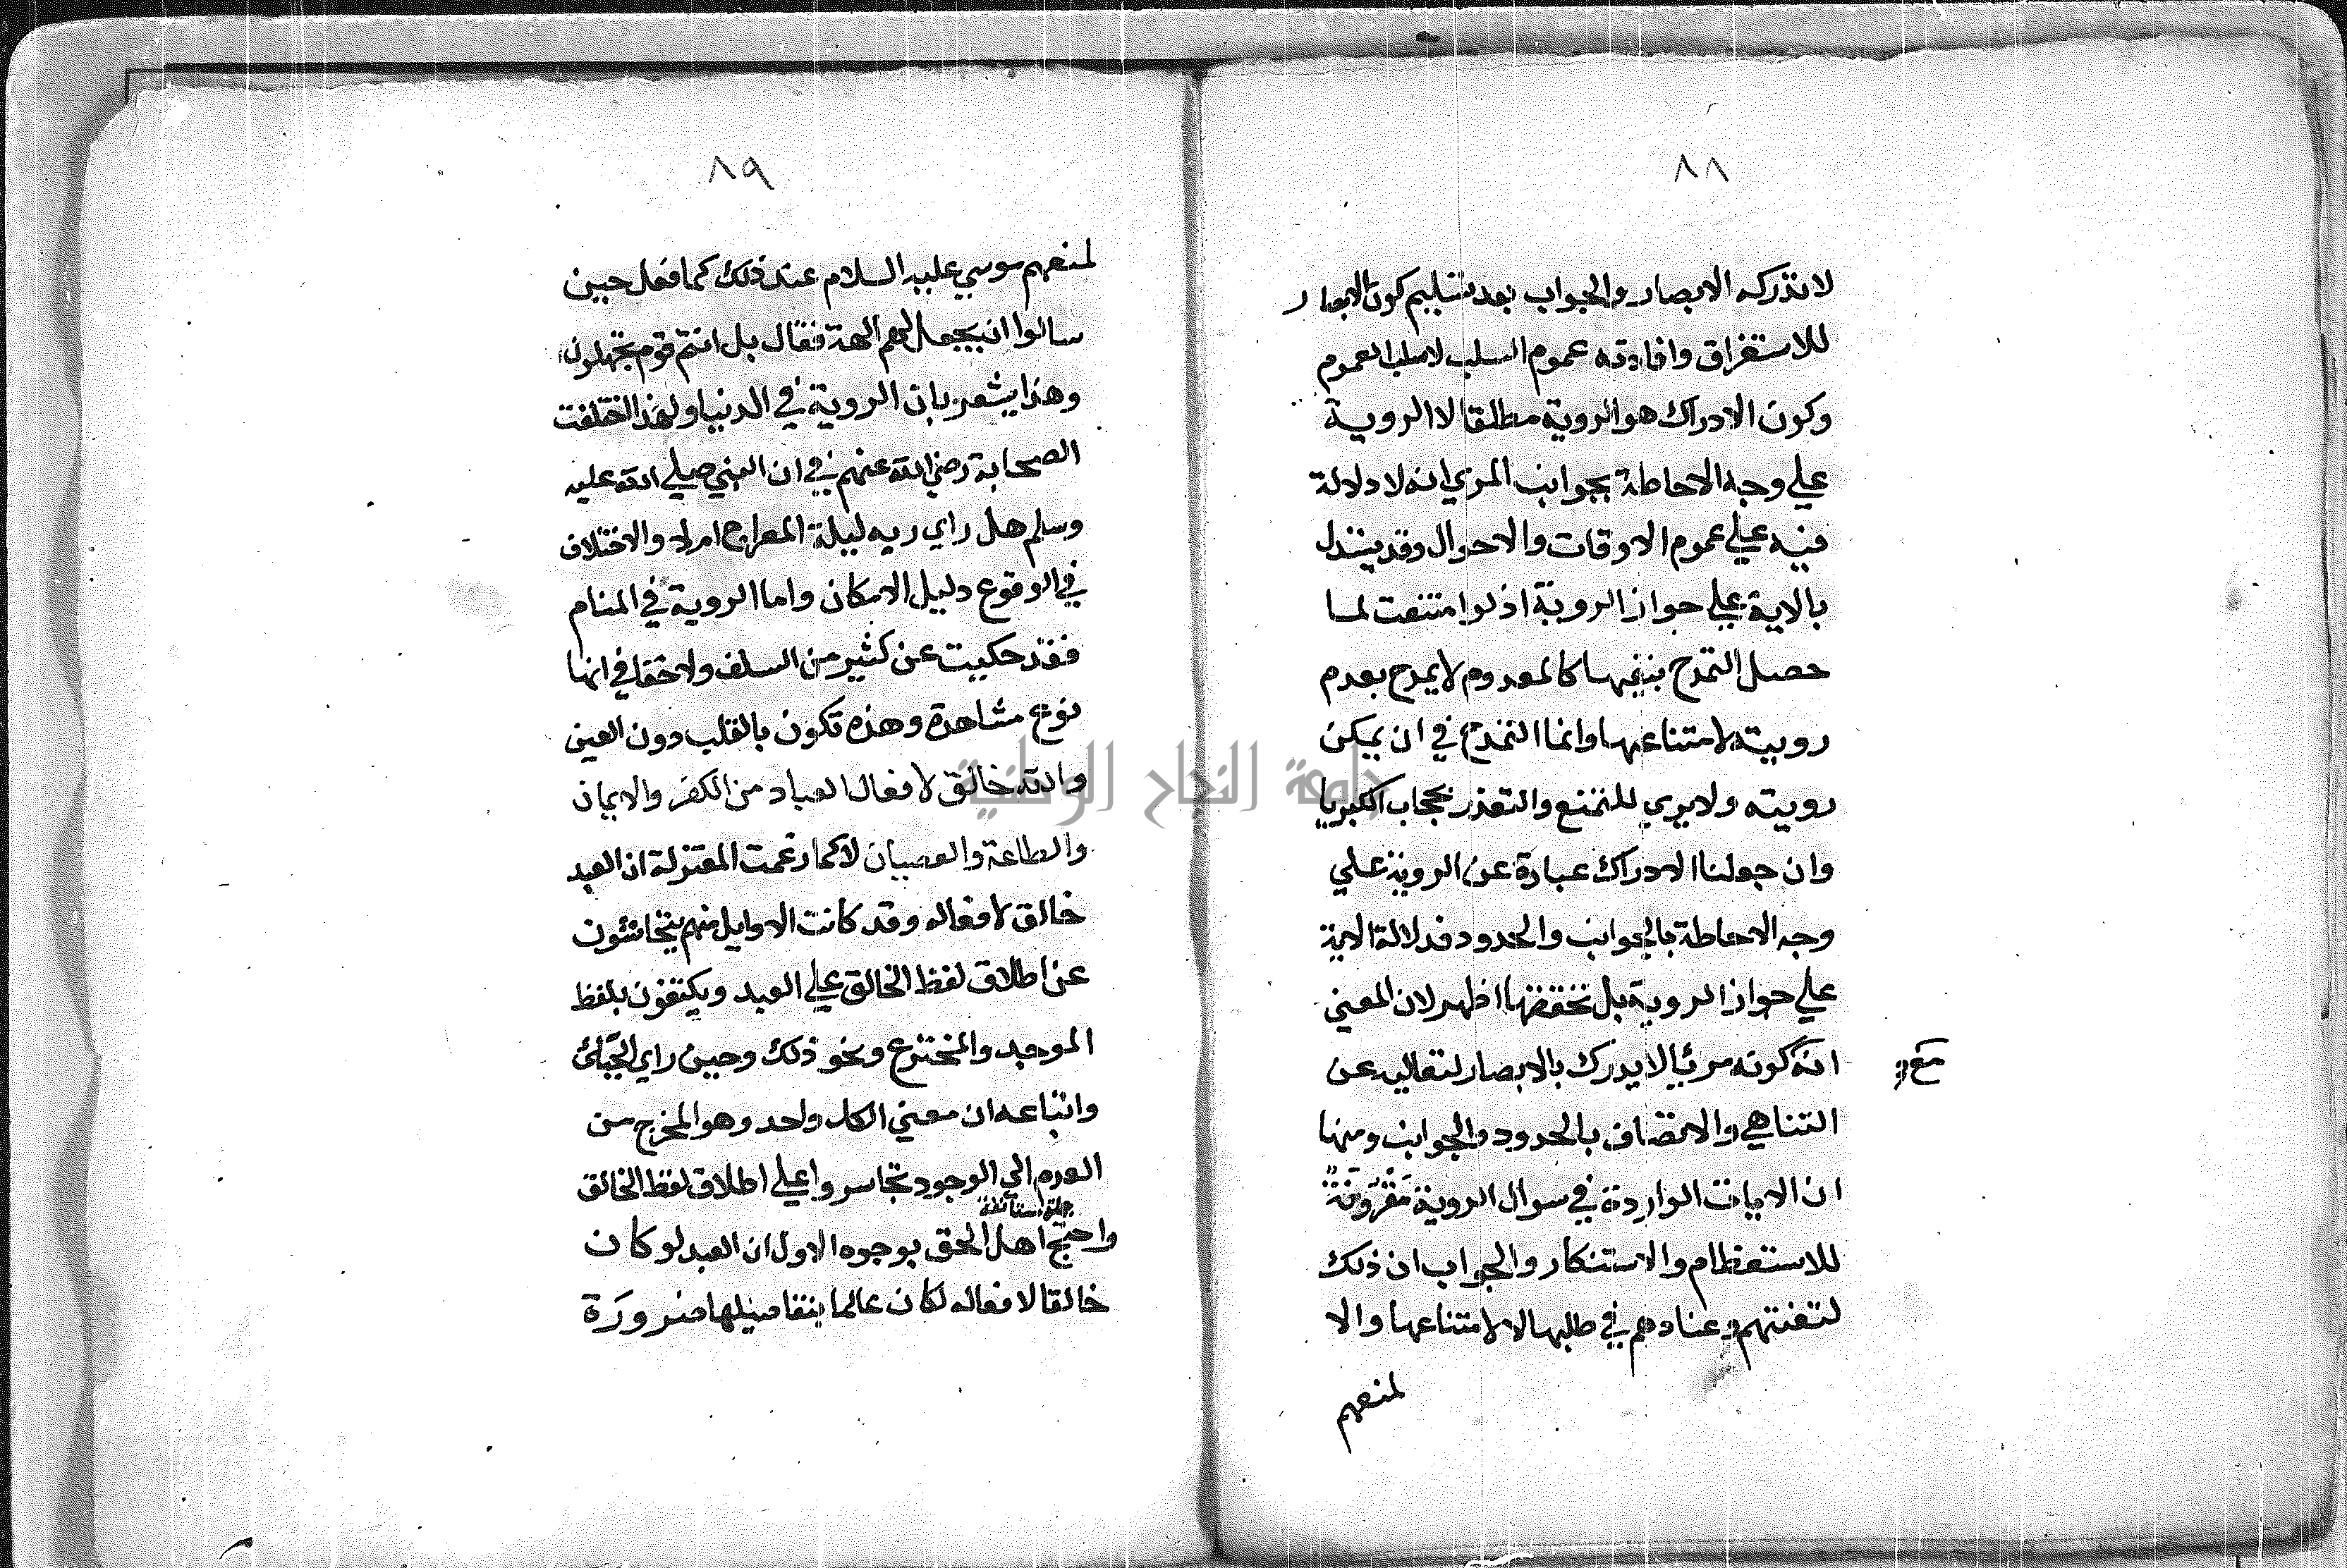 ٨٨
لا تدركه الابصار والجواب بعد تسليم كون الابصار
للاستغراق وافادته عموم السلب لا سلب العموم
وكون الادراك هو الروية مطلقا لا الروية
علي وجه الاحاطة بجوانب المري انه لا دلالة
فيه علي عموم الاوقات والاحوال وقد يستدل
بالاية علي جواز الروية اذ لو امتنعت لما
حصل التمدح بنفيها كالمعدوم لا يمدح بعدم
رويته لامتناعها وانما التمدح في ان يمكن
رويته ولا يري للتمنع والتعذر بحجاب الكبريا
وان جعلنا الادراك عبارة عن الروية علي
وجه الاحاطة بالجوانب والحدود فدلالة الاية
علي جواز الروية بل تحققها اظهر لان المعني
انه كونه مرئيا لا يدرك بالابصار لتعاليه عن
مع
التناهي والاتصاف بالحدود والجوانب ومنها
ان الايات الواردة في سوال الروية مَقْرُونَةً
للاستعظام والاستنكار والجواب ان ذلك
لتعنتهم وعنادهم في طلبها لا لامتناعها والا
لمنعهم
٨٩
لمنعهم موسي عليه السلام عند ذلك كما فعل حين
سالوا ان يجعل لهم الهة فقال بل انتم قوم تجهلون
وهذا يشعر بان الروية في الدنيا ولهذا اختلفت
الصحابة رضي الله عنهم في ان النبي صلي الله عليه
وسلم هل راي ربه ليلة المعراج ام لا والاختلاف
في الوقوع دليل الامكان واما الروية في المنام
فقد حكيت عن كثير من السلف ولا خفا في انها
نوع مشاهدة وهذه تكون بالقلب دون العين
والله خالق لافعال العباد من الكفر والايمان
والطاعة والعصيان لا كما زعمت المعتزلة ان العبد
خالق لافعاله وقد كانت الاوايل منهم يتحاشون
عن اطلاق لفظ الخالق علي العبد ويكتفون بلفظ
الموجد والمخترع ونحو ذلك وحين راي الجبائ
واتباعه ان معني الكل واحد وهو المخرج من
العدم الي الوجود تجاسروا علي اطلاق لفظ الخالق
جملة مستانفة
واحتج اهل الحق بوجوه الاول ان العبد لو كان
خالقا لافعاله لكان عالما بتفاصيلها ضرورَة
جامعة النجاح الوطنية